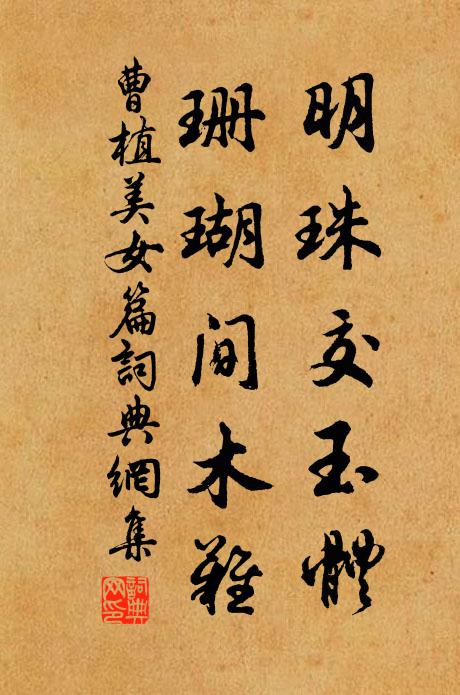 明珠交玉體
珊瑚間木難
曹植美女篇詞典網集
詞典網印